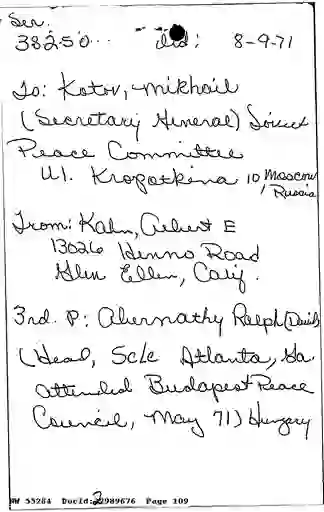 Ser.
38250... dtd: 8-9-71
To: Kotov, Mikhail
(Secretary General) Soviet
Peace Committee
Ul. Kropotkina 10 Moscow
, Russia
From: Kahn, Albert E
13026 Henno Road
Glen Ellen, Calif.
3rd. P: Abernathy Ralph (David)
(Head, Sclc Atlanta, Ga.
attended Budapest Peace
Council, May 71) Hungary
NW 55284 DocId:32989676 Page 109